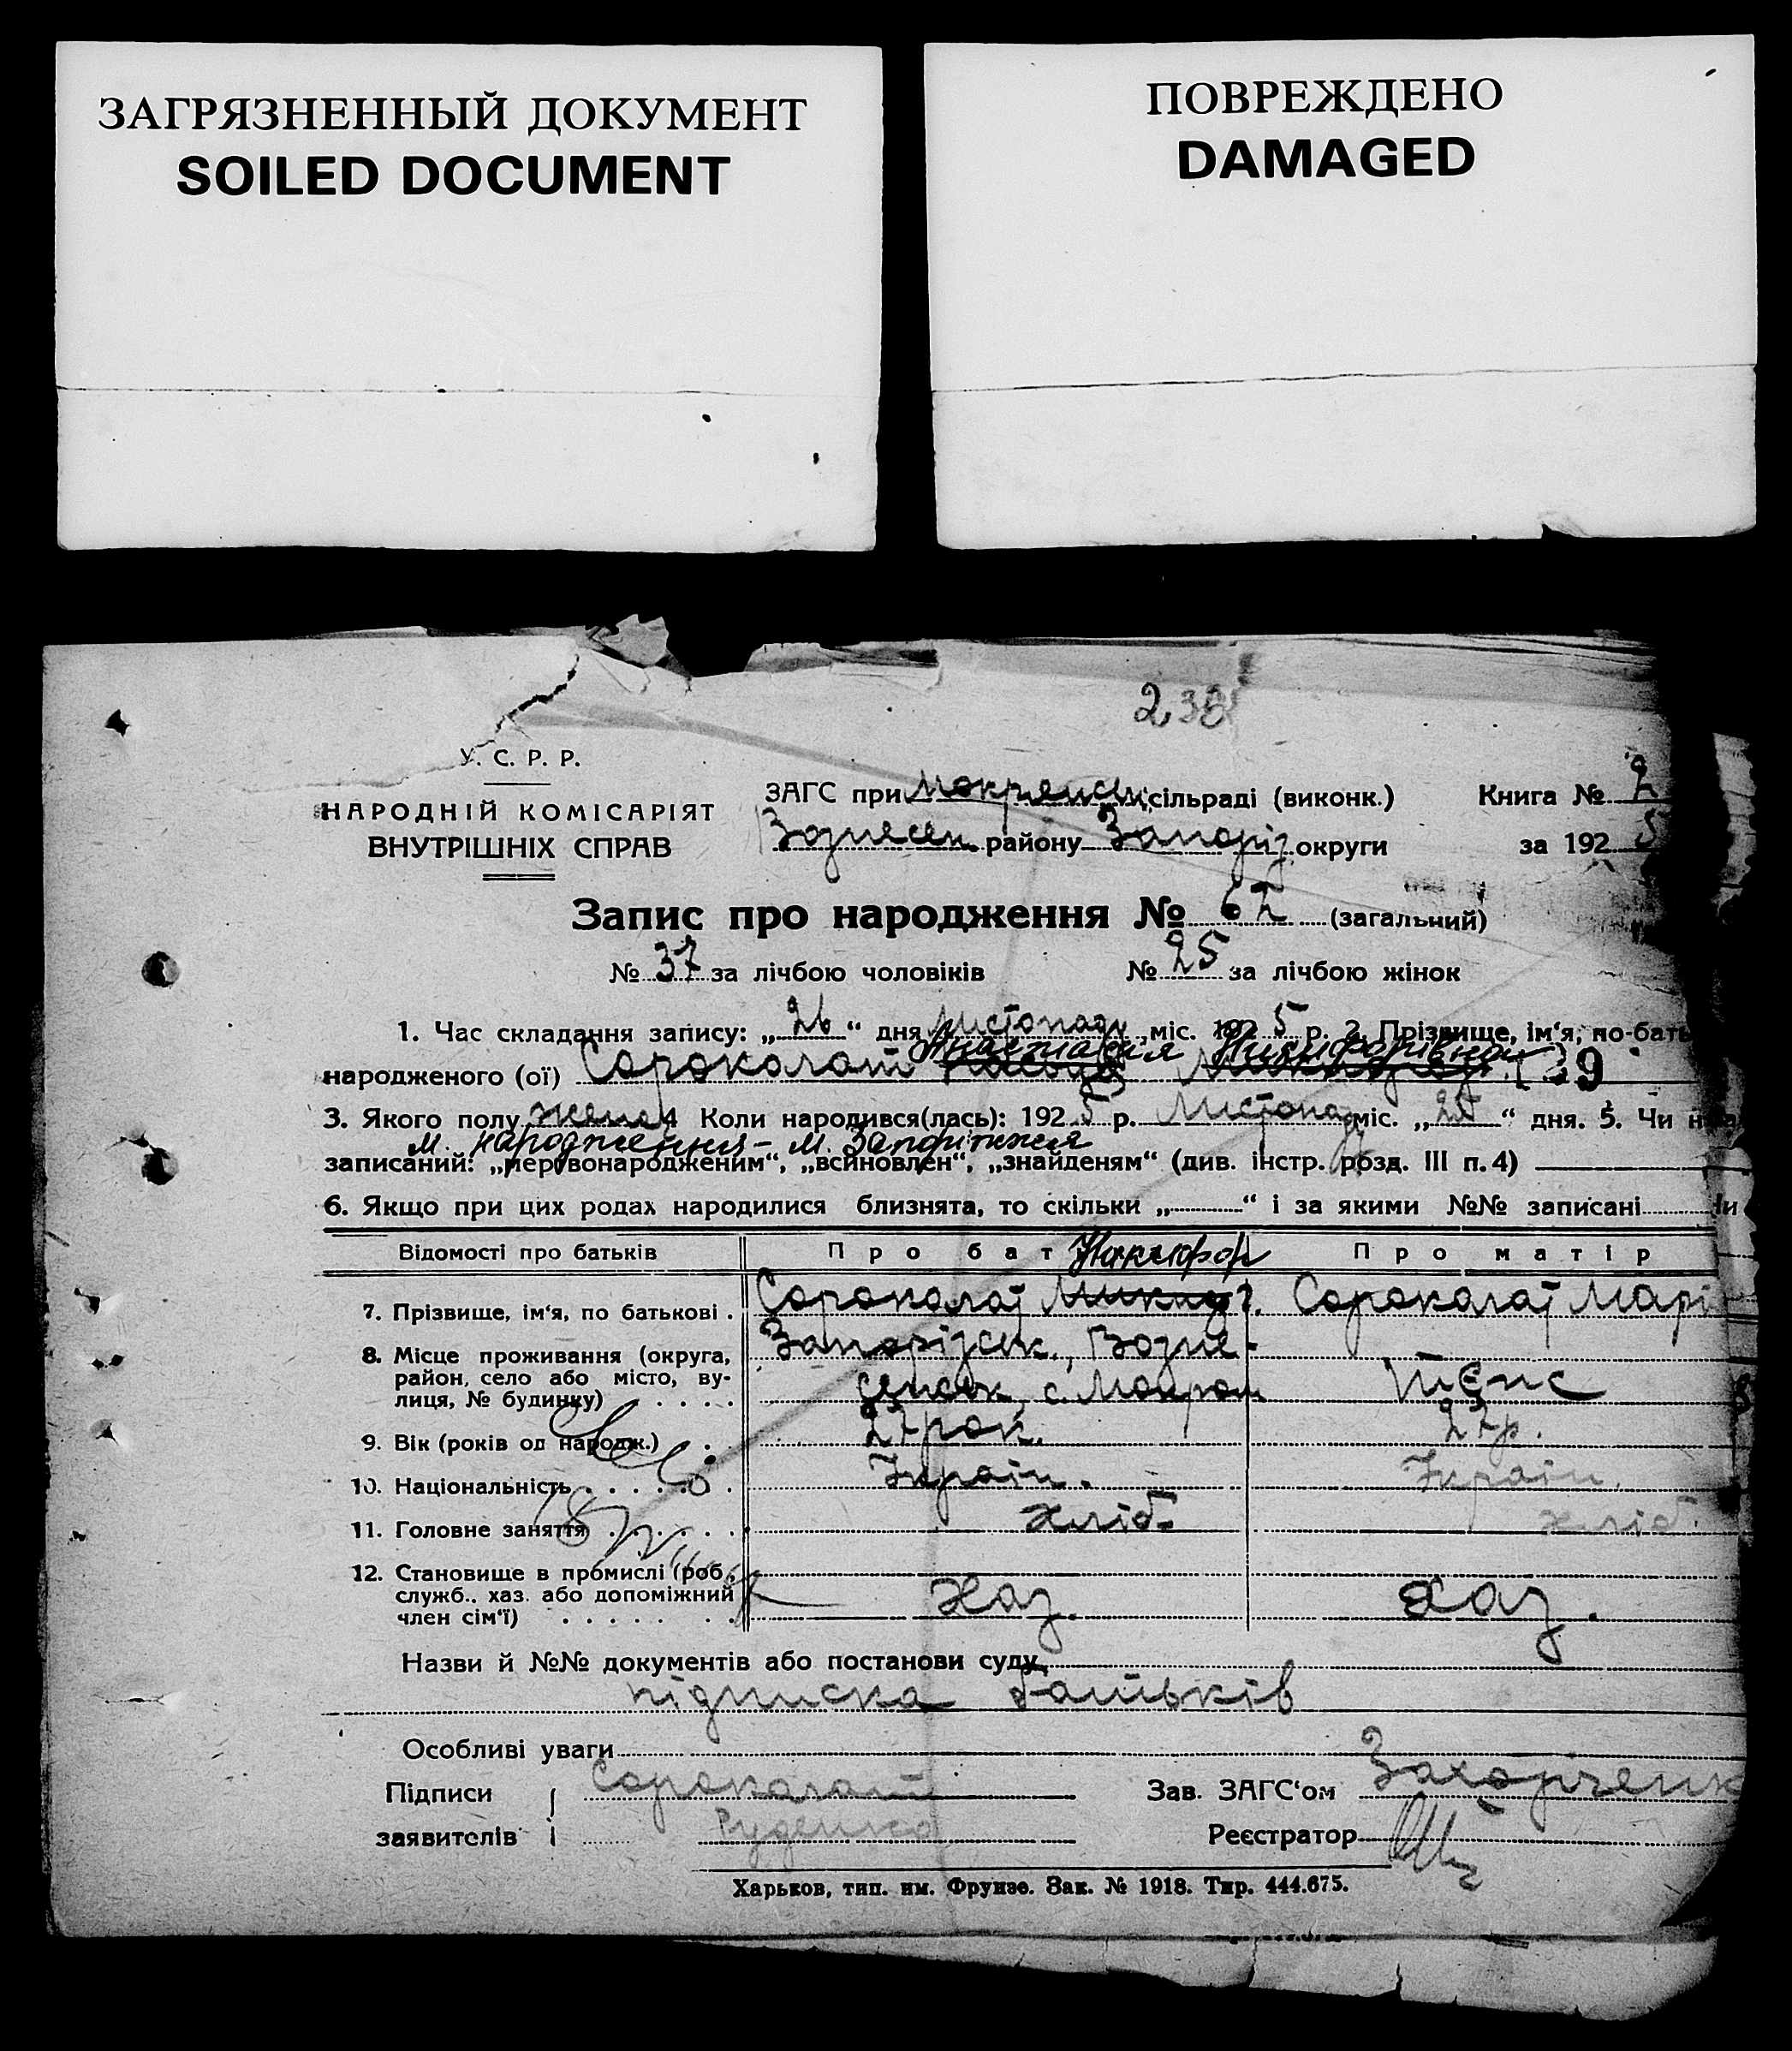 ЗАГРЯЗНЕННЫЙ ДОКУМЕНТ
SOILED DOCUMENT
ПОВРЕЖДЕНО
DAMAGED
238
У. С. Р. Р.
НАРОДНІЙ КОМІСАРІЯТ
ВНУТРІШНІХ СПРАВ
ЗАГС при Мокрянськ. сільраді (виконк.) Книга № 2
Вознесен. району Запоріз. округи за 1925
Запис про народження № 62 (загальний)
№ 37 за лічбою чоловіків № 25 за лічбою жінок
1. Час складання запису: „26“ дня Листопаду міс. 1925 р. 2. Прізвище, ім'я, по-бать
Анастасія Никифорівна
народженого (ої) Сорокалат 139
3. Якого полу жено 4 Коли народився(лась): 1925 р. Листопад міс. „25“ дня. 5. Чи н
м. народження - м. Запоріжжя
записаний: „первонародженим“, „всиновлен“, „знайденям“ (див. інстр. розд. III п. 4)
6. Якщо при цих родах народилися близнята, то скільки „ “ і за якими №№ записані Чи
Відомості про батьків Про бат Никифор Про матір
7. Прізвище, ім'я, по батькові . Сорокалат Микиф. Сорокалат Марі
8. Місце проживання (округа, район, село або місто, вулиця, № будинку) . . . . Запорізськ., Возне-
сенськ с. Мокром Тєпс
9. Вік (років од народж.) . 27 рок. 27р.
10. Національність . . . . . . Україн. Україн.
11. Головне заняття . . . . . . хліб. хліб.
12. Становище в промислі (роб., служб., хаз. або допоміжний член сім'ї) . . . . . . . Хаз. Хаз.
Назви й №№ документів або постанови суду
підписка батьків
Особливі уваги
Підписи Сорокалат Зав. ЗАГС'ом Захорченк
заявителів Руденко Реєстратор
Харьков, тип. им. Фрунзе. Зак. № 1918. Тир. 444.675.